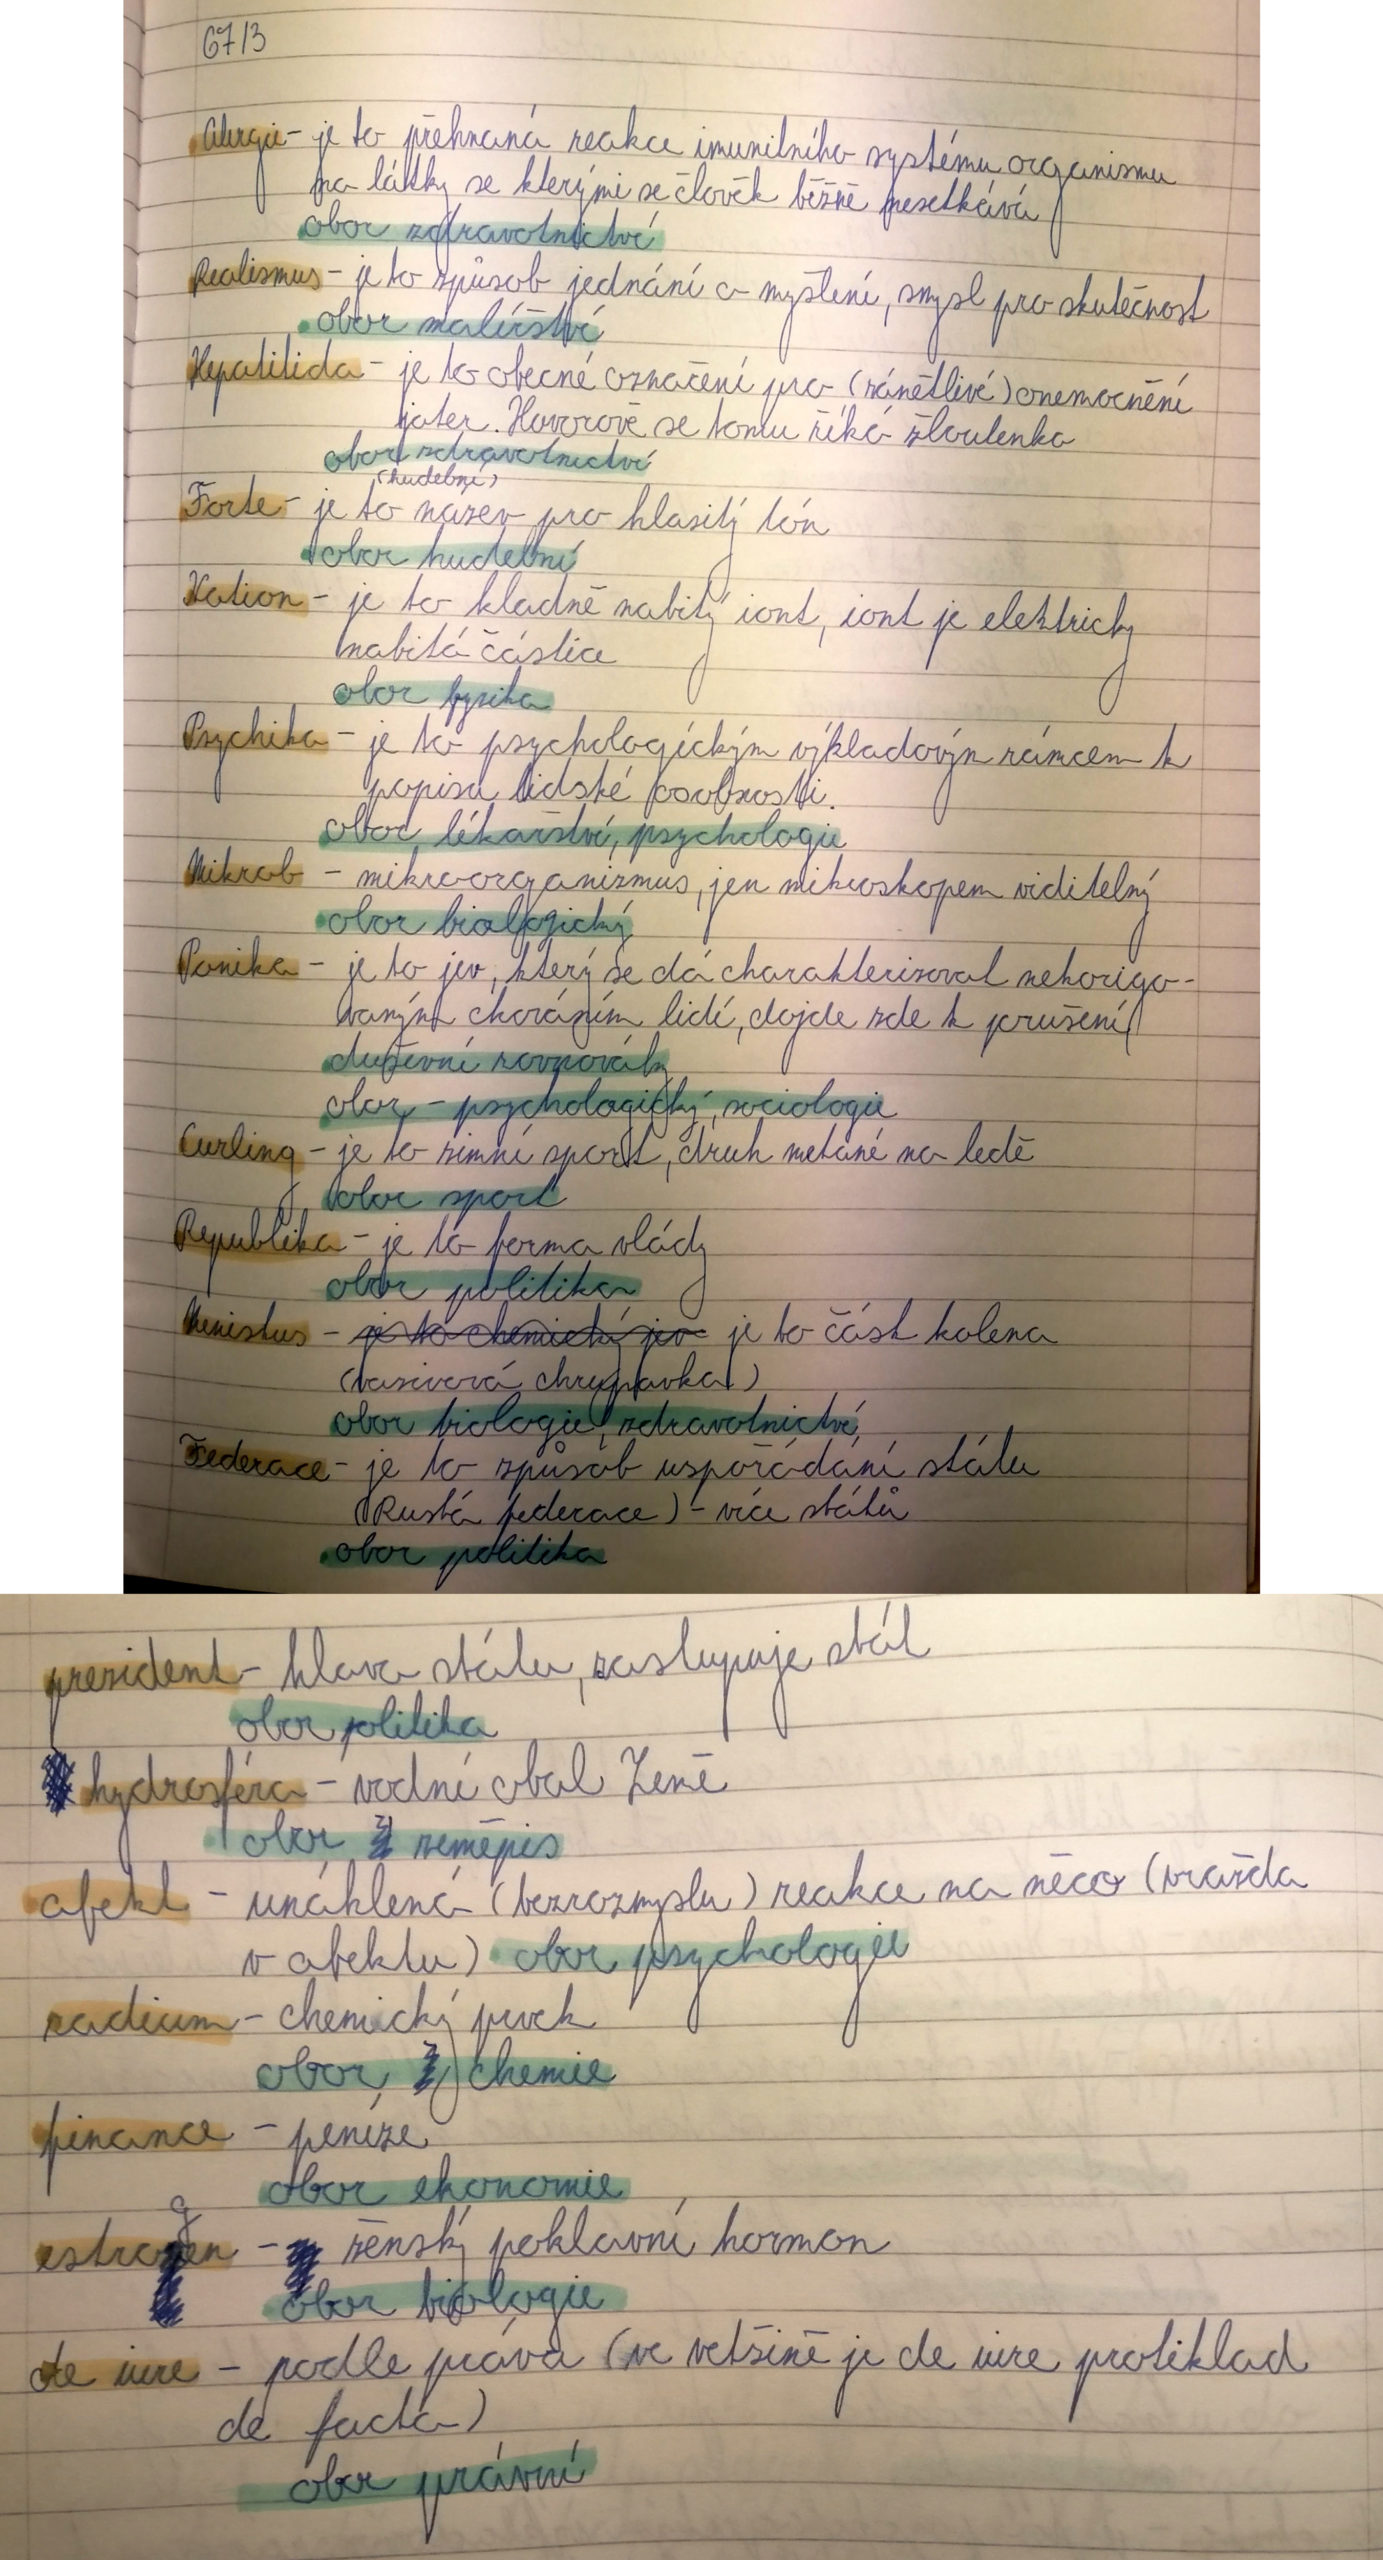 67/3
Alergie - je to přehnaná reakce imunitního systému organismu
na látky se kterými se člověk běžně nesetkává
obor zdravotnictví
Realismus - je to způsob jednání a myšlení, smysl pro skutečnost
obor malířství
Hepatitida - je to obecné označení pro (zánětlivé) onemocnění
jater. Hovorově se tomu říká žloutenka
obor zdravotnictví
(hudební)
Forte - je to název pro hlasitý tón
obor hudební
Kation - je to kladně nabitý iont, iont je elektricky
nabitá částice
obor fyzika
Psychika - je to psychologickým výkladovým rámcem k
popisu lidské osobnosti.
obor lékařství, psychologie
Mikrob - mikroorganizmus, jen mikroskopem viditelný
obor biologický
Panika - je to jev, který se dá charakterizovat nekorigo-
vaným chováním lidí, dojde zde k porušení
duševní rovnováhy
obor - psychologický, sociologie
Curling - je to zimní sport, druh metané na ledě
obor sport
Republika - je to forma vlády
obor politika
Meniskus - je to chemický jev je to část kolena
(vazivová chrupavka)
obor biologie, zdravotnictví
Federace - je to způsob uspořádání státu
(Ruská federace) - více států
obor politika
prezident - hlava státu, zastupuje stát
obor politika
hydrosféra - vodní obal Země
obor zeměpis
afekt - unáhlená (bezrozmyslu) reakce na něco (vražda
v afektu) obor psychologie
radium - chemický prvek
obor chemie
finance - peníze
obor ekonomie
g
estrogen - ženský pohlavní hormon
obor biologie
de iure - podle práva (ve vetšině je de iure protiklad
de facta)
obor právní